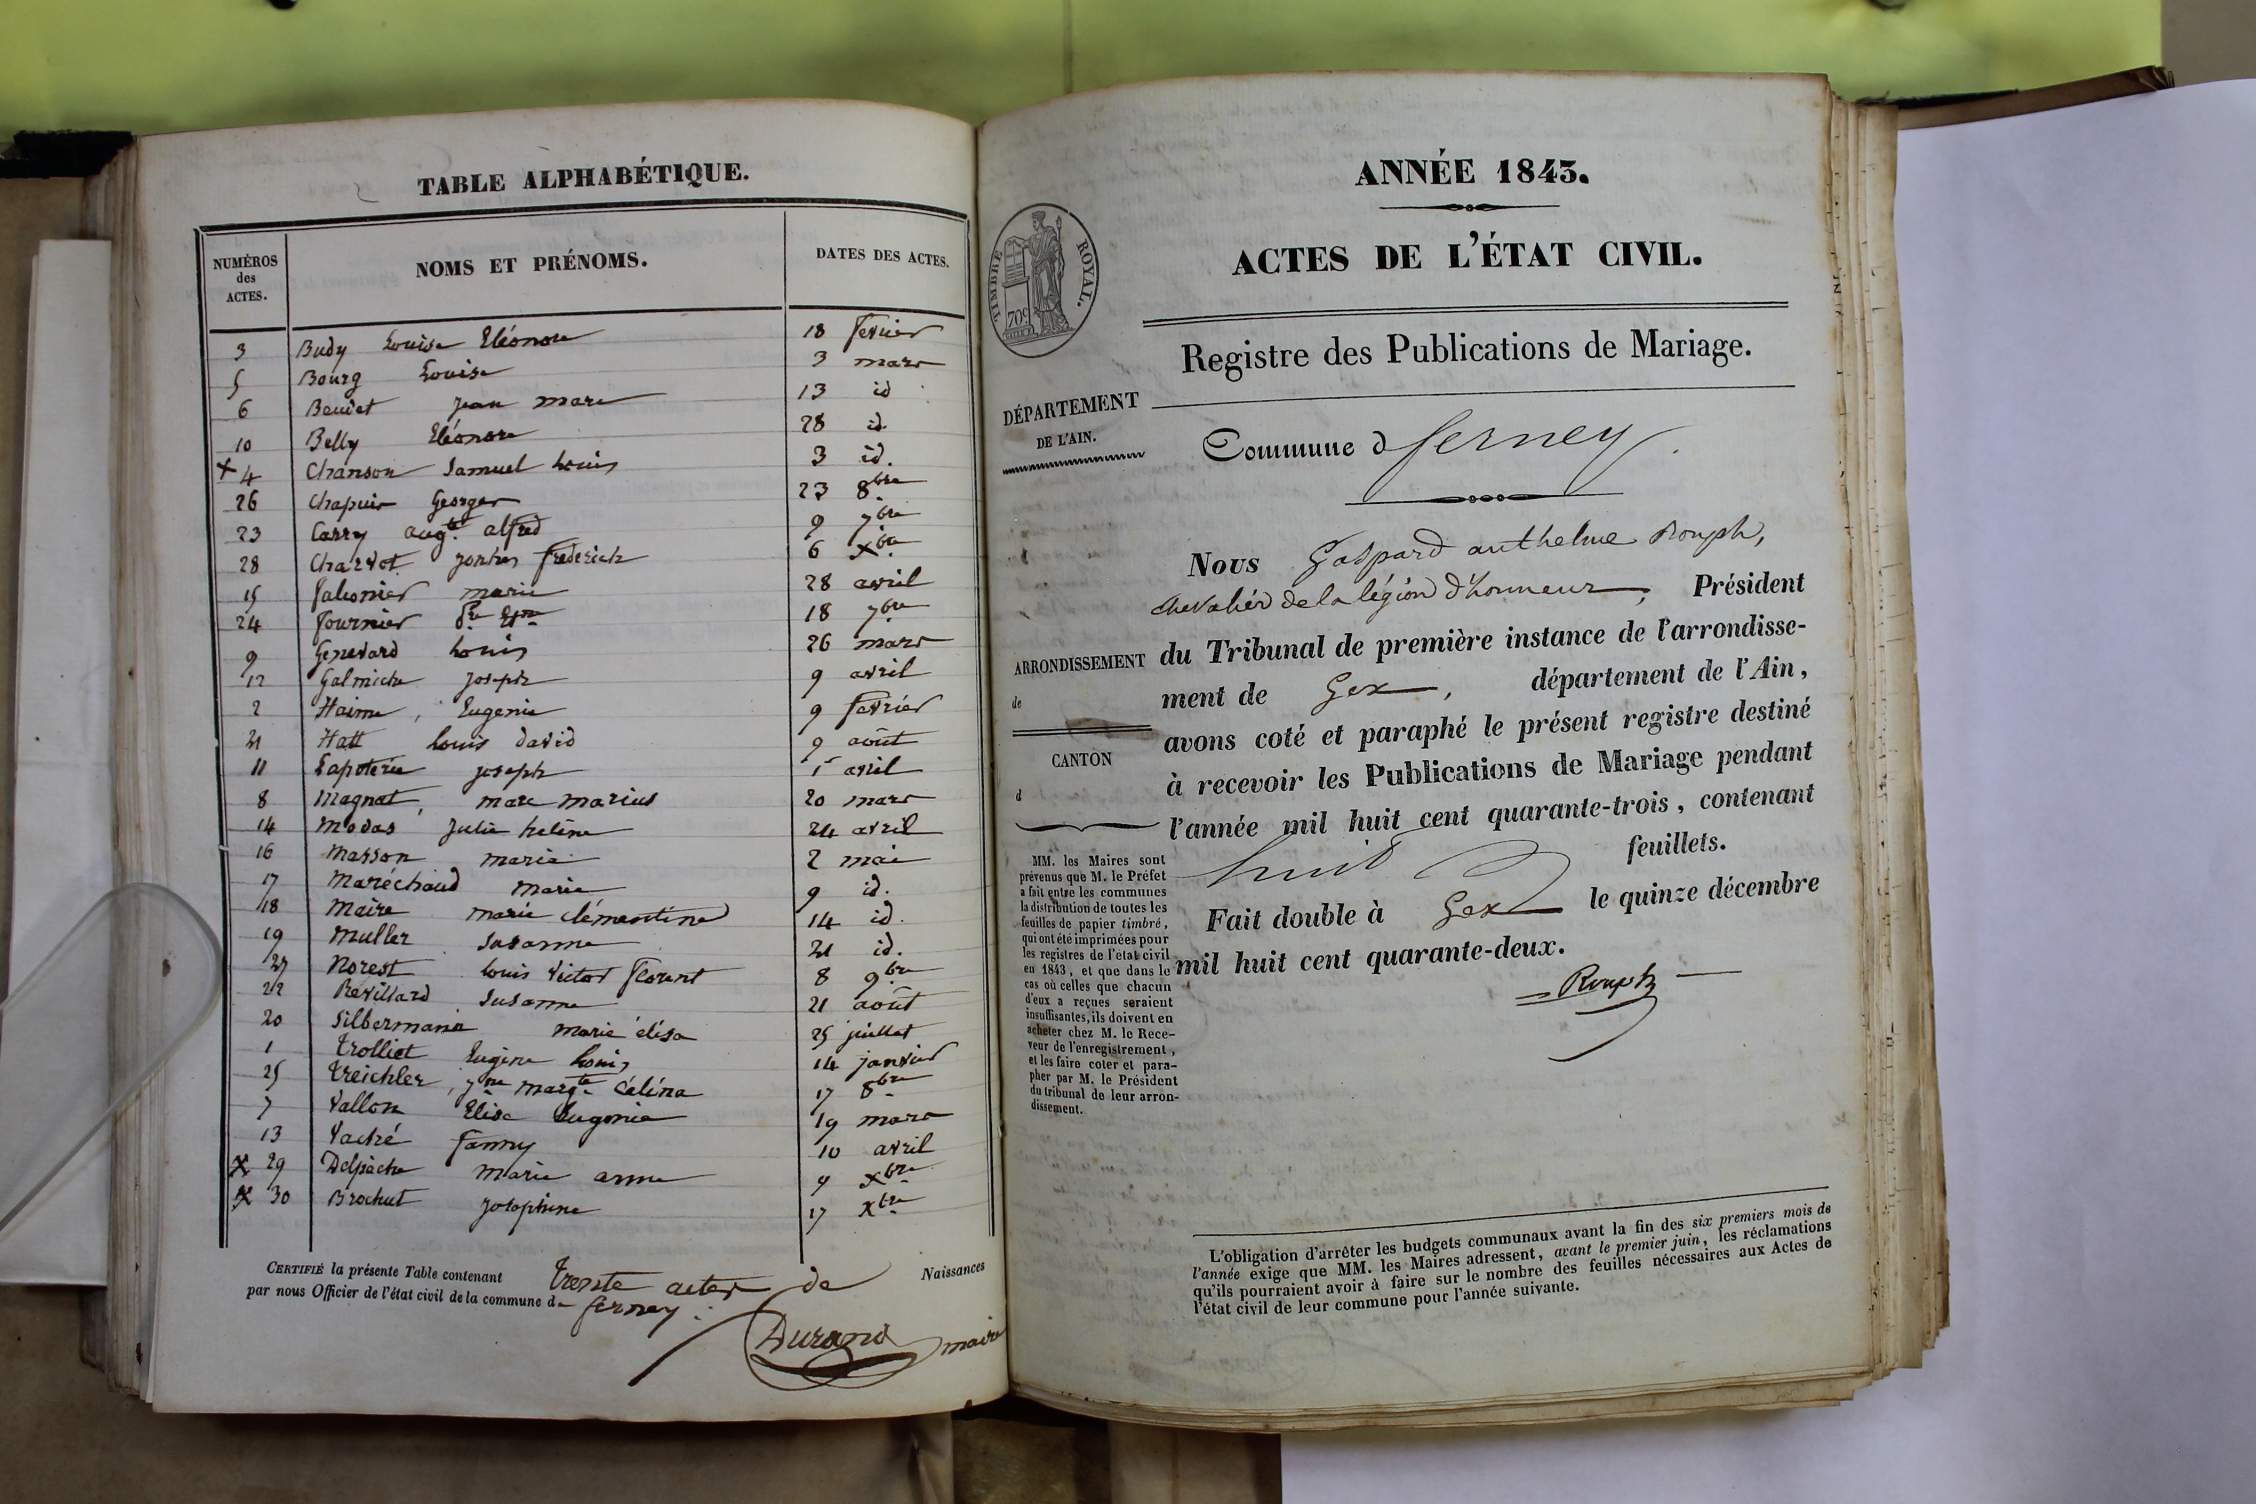 TABLE ALPHABÉTIQUE.
NUMÉROS des ACTES. NOMS ET PRÉNOMS. DATES DES ACTES.
3 Budy Louise Eléonore 18 fevrier
5 Bourg Louise 3 mars
6 Beudet jean marc 13 id
10 Belly Eléonore 28 id.
+ 4 Chanson Samuel Louis 3 id.
26 Chapuis Georges 23 8bre
23 Carry aug.te alfred 9 7bre
28 Charvot frederich 6 xbre
15 Falconier marie 28 avril
24 Fournier 18 7bre
9 Genevard Louis 26 mars
12 Galmiche joseph 9 avril
2 Haime, Eugenie 9 fevrier
21 Hatt Louis david 9 août
11 Lapoterie joseph 1 avril
8 Magnat, marc marius 20 mars
14 Modas Julie heléne 24 avril
16 Masson marie 2 mai
17 Maréchaud marie 9 id.
18 Maire marie clémentine 14 id.
19 Muller Susanne 21 id.
27 Norest Louis Victor florent 8 9bre
22 Revillard Susanne 21 août
20 Silbermann marie élisa 25 juillet
1 Trolliet Eugène Louis 14 janvier
25 Treichler, marg.te Célina 17 8bre
7 Vallon Elise Eugenie 19 mars
13 Vaché Fanny 10 avril
x 29 Delpèche marie anne 9 xbre
x 30 Brochut josephine 17 xbre
CERTIFIÉ la présente Table contenant trente actes de Naissances
par nous Officier de l'état civil de la commune de ferney.
Durand maire
ANNÉE 1843.
ACTES DE L'ÉTAT CIVIL.
TIMBRE ROYAL.
70c
Registre des Publications de Mariage.
DÉPARTEMENT
DE L'AIN.
Commune d ferney
Nous Gaspard anthelme Rouph,
chevalier de la légion d'honneur, Président
du Tribunal de première instance de l'arrondisse-
ment de Gex, département de l'Ain,
avons coté et paraphé le présent registre destiné
à recevoir les Publications de Mariage pendant
l'année mil huit cent quarante-trois, contenant
huit feuillets.
Fait double à Gex le quinze décembre
mil huit cent quarante-deux.
Rouph
ARRONDISSEMENT
de
CANTON
d
MM. les Maires sont
prévenus que M. le Préfet
a fait entre les communes
la distribution de toutes les
feuilles de papier timbré,
qui ont été imprimées pour
les registres de l'état civil
en 1843, et que dans le
cas où celles que chacun
d'eux a reçues seraient
insuffisantes, ils doivent en
acheter chez M. le Rece-
veur de l'enregistrement,
et les faire coter et para-
pher par M. le Président
du tribunal de leur arron-
dissement.
L'obligation d'arrêter les budgets communaux avant la fin des six premiers mois de
l'année exige que MM. les Maires adressent, avant le premier juin, les réclamations
qu'ils pourraient avoir à faire sur le nombre des feuilles nécessaires aux Actes de
l'état civil de leur commune pour l'année suivante.